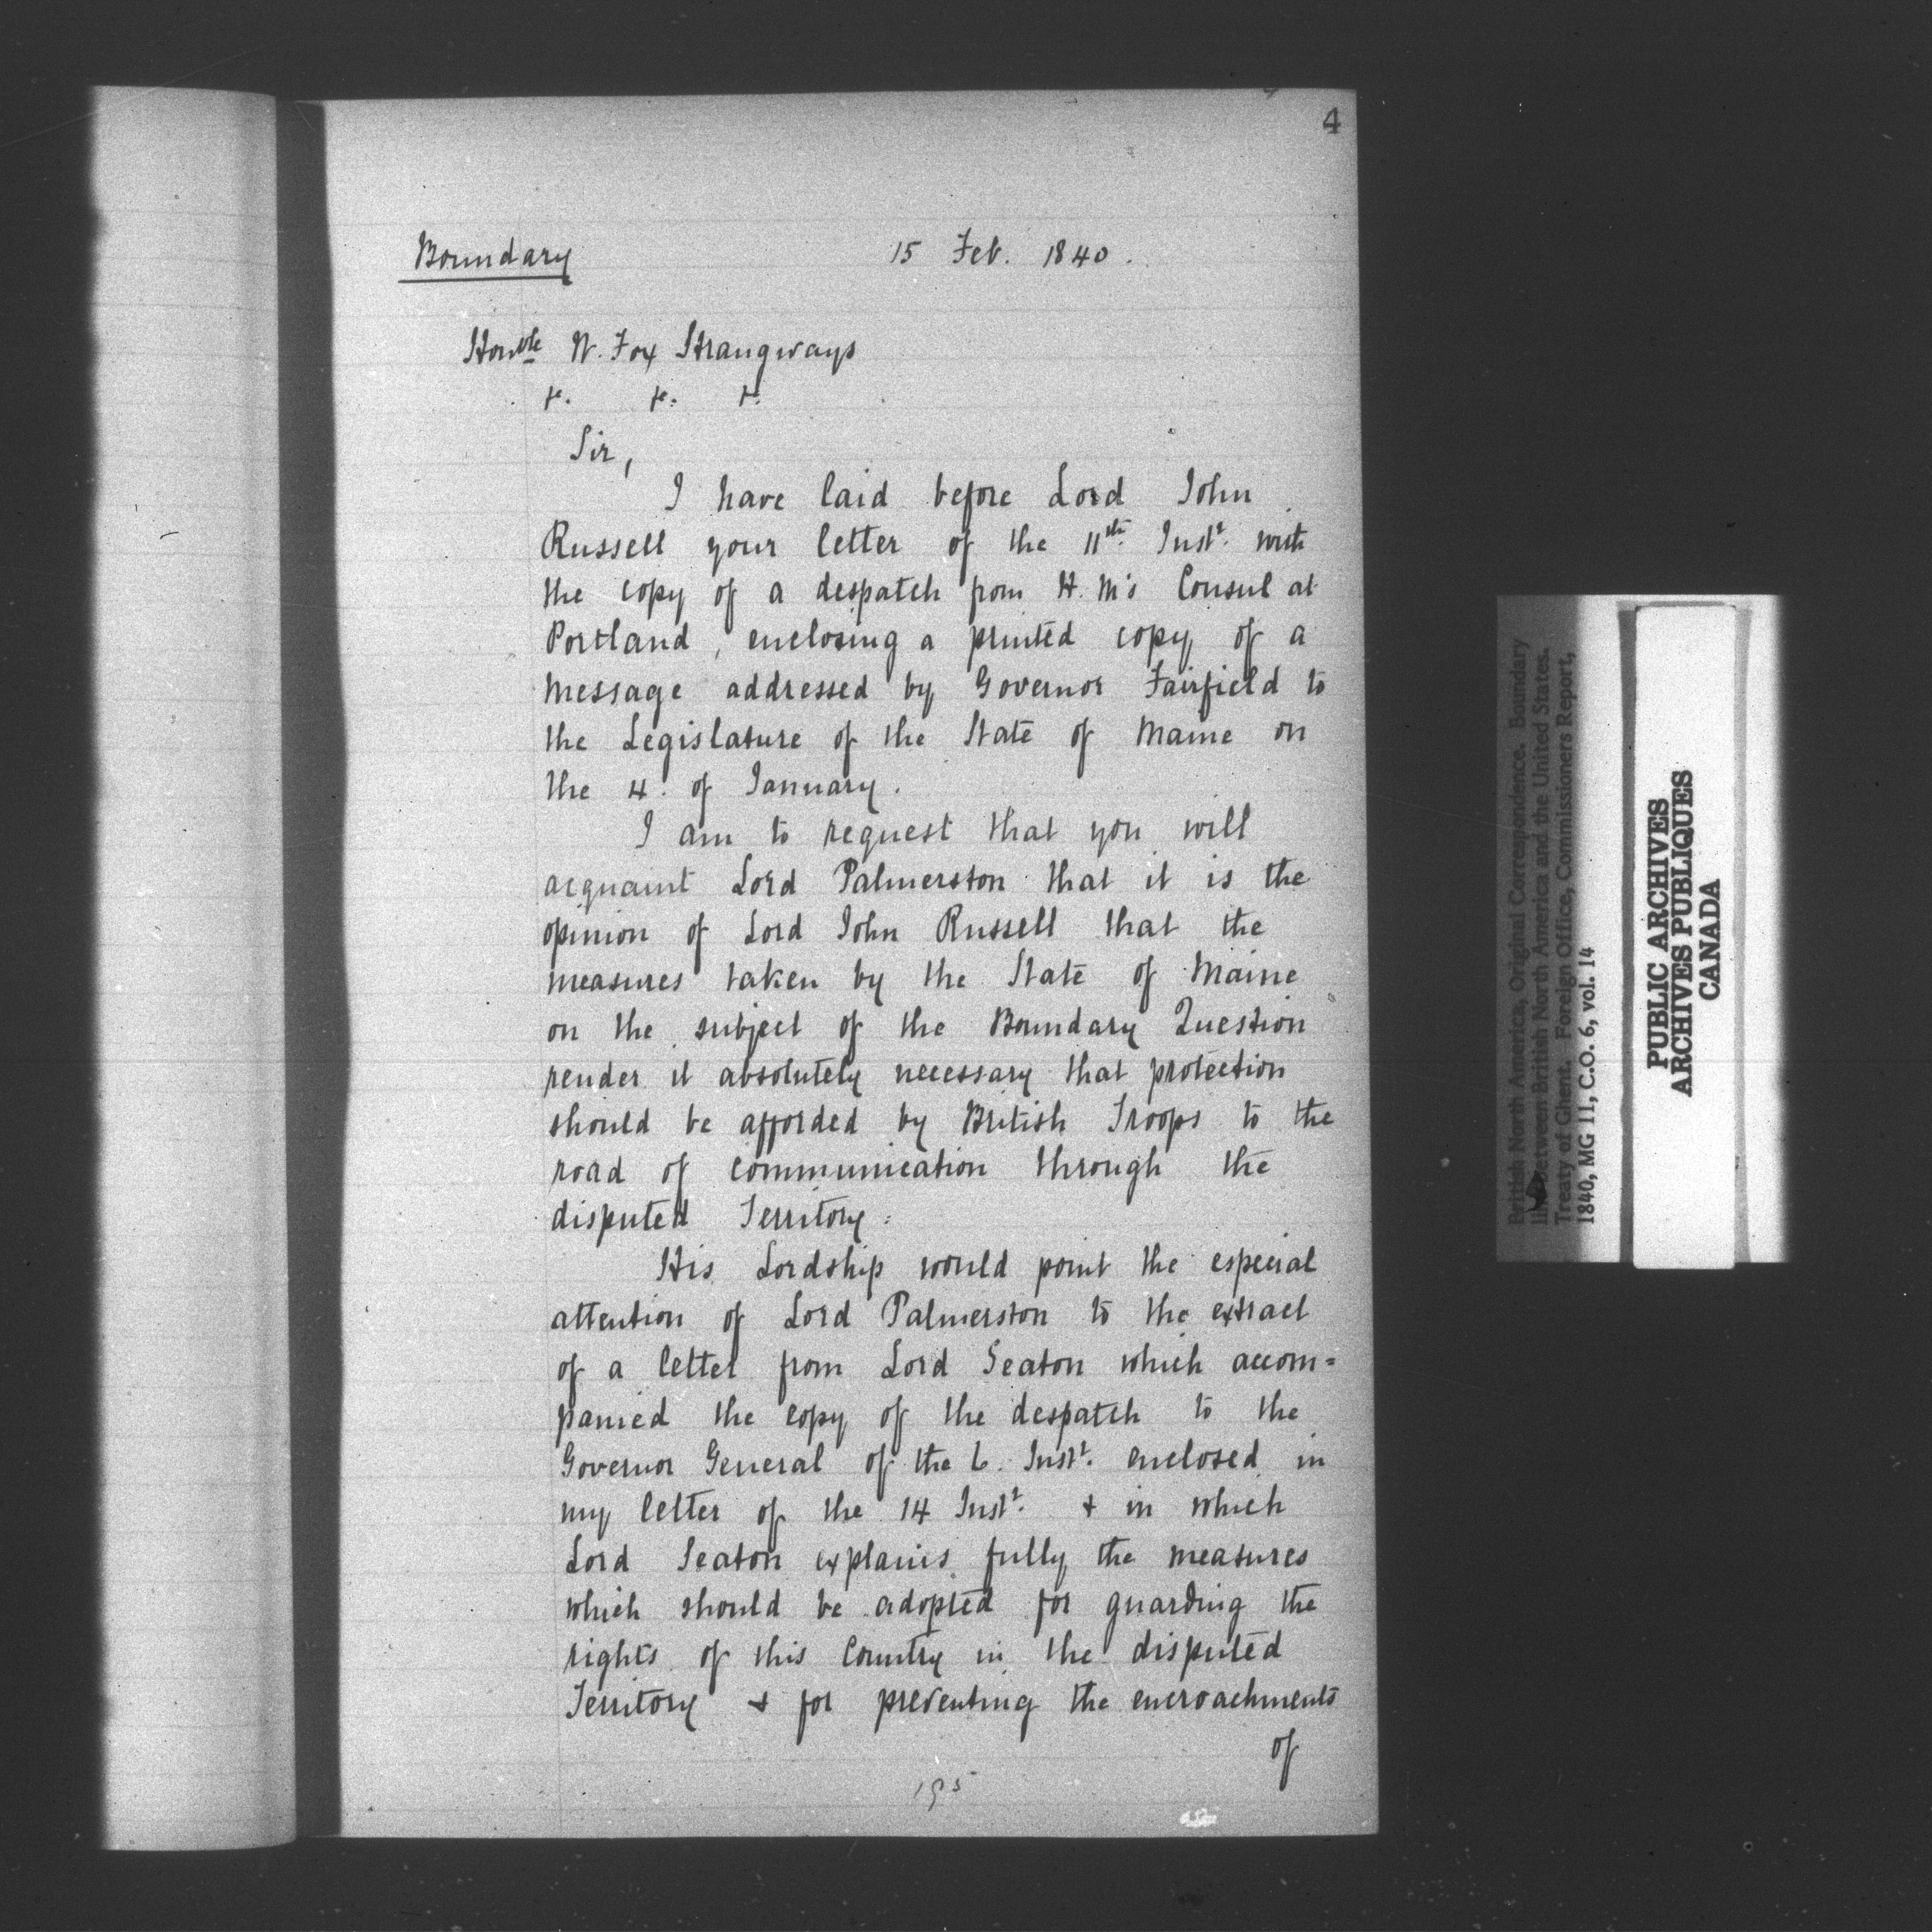 4
Boundary 15 Feb. 1840.
Honble W. Fox Strangways
&c. &c. &c.
Sir,
I have laid before Lord John
Russell your letter of the 11th. Inst. with
the copy of a despatch from H. M's Consul at
Portland, enclosing a printed copy of a
message addressed by Governor Fairfield to
the Legislature of the State of Maine on
the 4. of January.
I am to request that you will
acquaint Lord Palmerston that it is the
opinion of Lord John Russell that the
measures taken by the State of Maine
on the subject of the Boundary Question
render it absolutely necessary that protection
should be afforded by British Troops to the
road of communication through the
disputed Territory.
His Lordship would point the especial
attention of Lord Palmerston to the extract
of a letter from Lord Seaton which accom=
panied the copy of the despatch to the
Governor General of the 6. Inst. enclosed in
my letter of the 14 Inst. & in which
Lord Seaton explains fully the measures
which should be adopted for guarding the
rights of this Country in the disputed
Territory & for preventing the encroachments
of
195
British North America, Original Correspondence. Boundary
line between British North America and the United States.
Treaty of Ghent. Foreign Office, Commissioners Report,
1840, MG 11, C.O. 6, vol. 14
PUBLIC ARCHIVES
ARCHIVES PUBLIQUES
CANADA